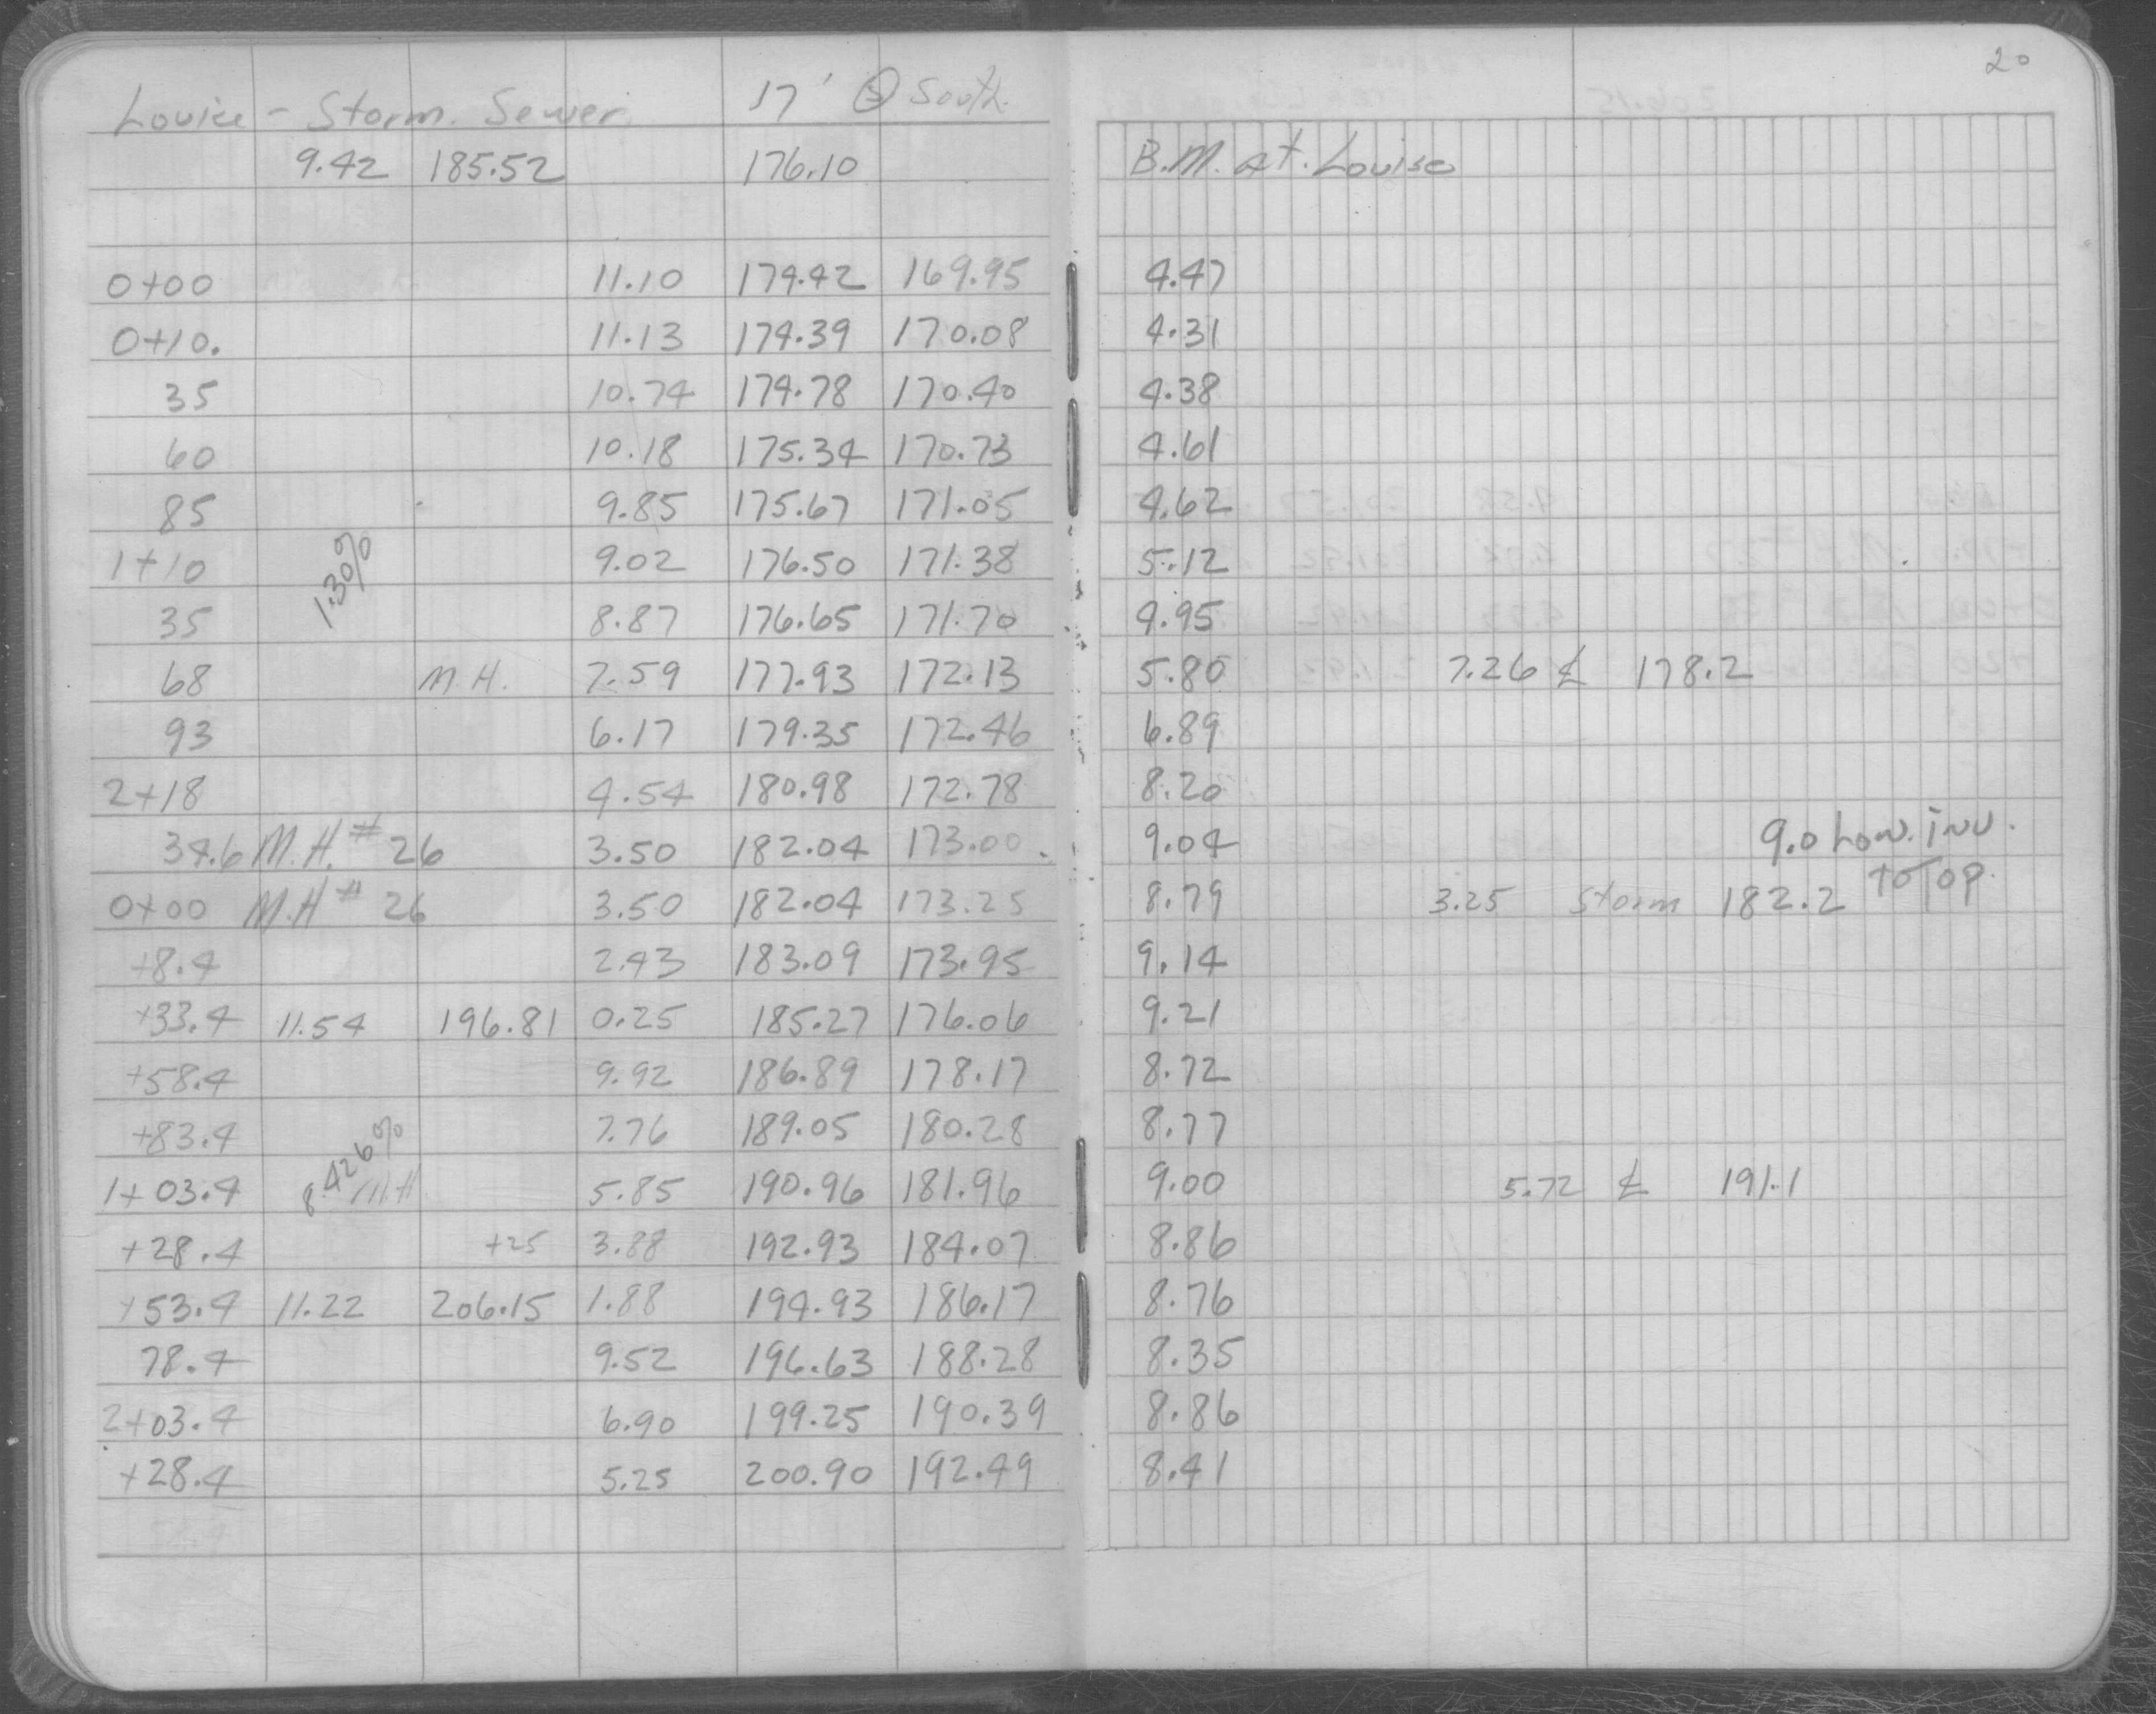 20
Louise - Storm. Sewer. 17' @ South.
9.42 185.52 176.10 B.M. at. Louise
0+00 11.10 174.42 169.95 4.47
0+10. 11.13 174.39 170.08 4.31
35 10.74 174.78 170.40 4.38
60 10.18 175.34 170.73 4.61
85 9.85 175.67 171.05 4.62
1+10 1.30% 9.02 176.50 171.38 5.12
35 8.87 176.65 171.70 4.95
68 M.H. 7.59 177.93 172.13 5.80 7.26 ℄ 178.2
93 6.17 179.35 172.46 6.89
2+18 4.54 180.98 172.78 8.20
34.6 M.H. # 26 3.50 182.04 173.00 9.04 9.0 Low. inv.
to Top.
0+00 M.H # 26 3.50 182.04 173.25 8.79 3.25 Storm 182.2
+8.4 2.43 183.09 173.95 9.14
+33.4 11.54 196.81 0.25 185.27 176.06 9.21
+58.4 9.92 186.89 178.17 8.72
+83.4 8.426% 7.76 189.05 180.28 8.77
1+03.4 M.H 5.85 190.96 181.96 9.00 5.72 ℄ 191.1
+28.4 +25 3.88 192.93 184.07 8.86
+53.4 11.22 206.15 1.88 194.93 186.17 8.76
78.4 9.52 196.63 188.28 8.35
2+03.4 6.90 199.25 190.39 8.86
+28.4 5.25 200.90 192.49 8.41